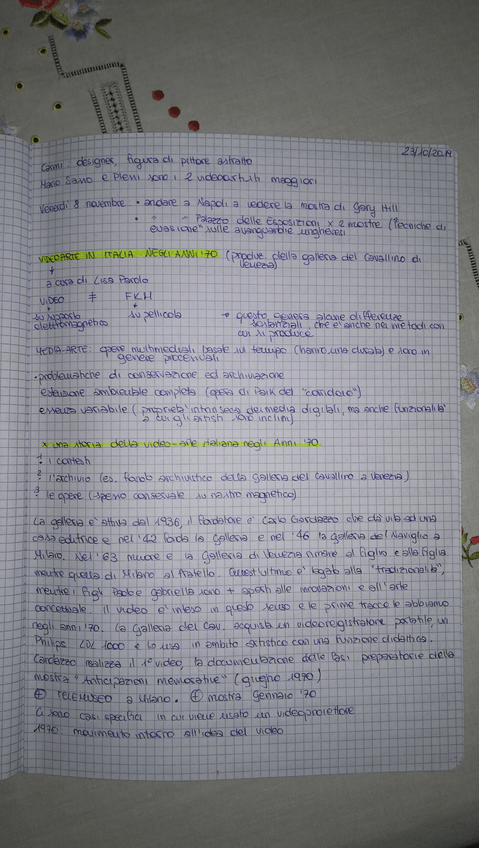 23/10/2019
Carmi designer, figura di pittore astratto
Mario Sasso e Plessi sono i 2 videoartisti maggiori
Venerdì 8 novembre • andare a Napoli a vedere la mostra di Gary Hill
• " " Palazzo delle Esposizioni x 2 mostre ("Tecniche di
evasione" sulle avanguardie ungheresi
VIDEOARTE IN ITALIA NEGLI ANNI '70 (produz. della galleria del Cavallino di
Venezia)
a cura di Lisa Parolo
VIDEO ≠ FILM
su supporto
elettromagnetico
su pellicola
→ questo genera alcune differenze
sostanziali, che è anche nei metodi con
cui si produce
MEDIA-ARTE: opere multimediali basate sul tempo (hanno una durata) e sono in
genere processuali
• problematiche di conservazione ed archiviazione
estensione ambientale completa (opera di Paik del "corridoio")
essenza variabile (proprietà intrinseca dei media digitali, ma anche funzionalità
a cui gli artisti sono inclini)
x una storia della video-arte italiana negli Anni '70
1 i contesti
2 l'archivio (es. fondo archivistico della galleria del Cavallino a Venezia)
3 le opere (spesso conservate su nastro magnetico)
La galleria è attiva dal 1936, il fondatore è Carlo Cardazzo che dà vita ad una
casa editrice e nel '42 fonda la Galleria e nel '46 la galleria del Naviglio a
Milano. Nel '63 muore e la Galleria di Venezia rimane al figlio e alla figlia
mentre quella di Milano al fratello. Quest'ultimo è legato alla "tradizionalità",
mentre i figli Paolo e Gabriella sono + aperti alle innovazioni e all'arte
concettuale. Il video è inteso in questo senso e le prime tracce le abbiamo
negli anni '70. La Galleria del Cav. acquista un videoregistratore portatile, un
Philips LDL 1000 e lo usa in ambito artistico con una funzione didattica.
Cardazzo realizza il 1° video, la documentazione delle fasi preparatorie della
mostra "Anticipazioni memorative" (giugno 1970)
⊕ TELEMUSEO a Milano. ⊕ mostra Gennaio '70
Ci sono casi specifici in cui viene usato un videoproiettore
1970 movimento intorno all'idea del video